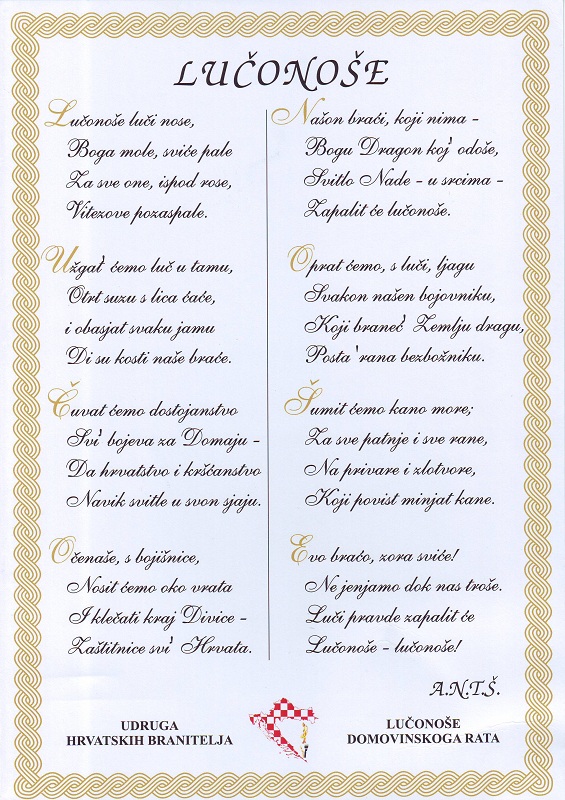 LUČONOŠE
Lučonoše luči nose,
Boga mole, sviće pale
Za sve one, ispod rose,
Vitezove pozaspale.
Užgat' ćemo luč u tamu,
Otrt suzu s lica ćaće,
i obasjat svaku jamu
Di su kosti naše braće.
Čuvat ćemo dostojanstvo
Svi' bojeva za Domaju -
Da hrvatstvo i kršćanstvo
Navik svitle u svon sjaju.
Očenaše, s bojišnice,
Nosit ćemo oko vrata
I klečati kraj Divice -
Zaštitnice svi' Hrvata.
Našon braći, koji nima -
Bogu Dragon koj' odoše,
Svitlo Nade - u srcima -
Zapalit će lučonoše.
Oprat ćemo, s luči, ljagu
Svakon našen bojovniku,
Koji braneć' Zemlju dragu,
Posta 'rana bezbožniku.
Šumit ćemo kano more;
Za sve patnje i sve rane,
Na privare i zlotvore,
Koji povist minjat kane.
Evo braćo, zora sviće!
Ne jenjamo dok nas troše.
Luči pravde zapalit će
Lučonoše - lučonoše!
A.N.T.Š.
UDRUGA
HRVATSKIH BRANITELJA
LUČONOŠE
DOMOVINSKOGA RATA